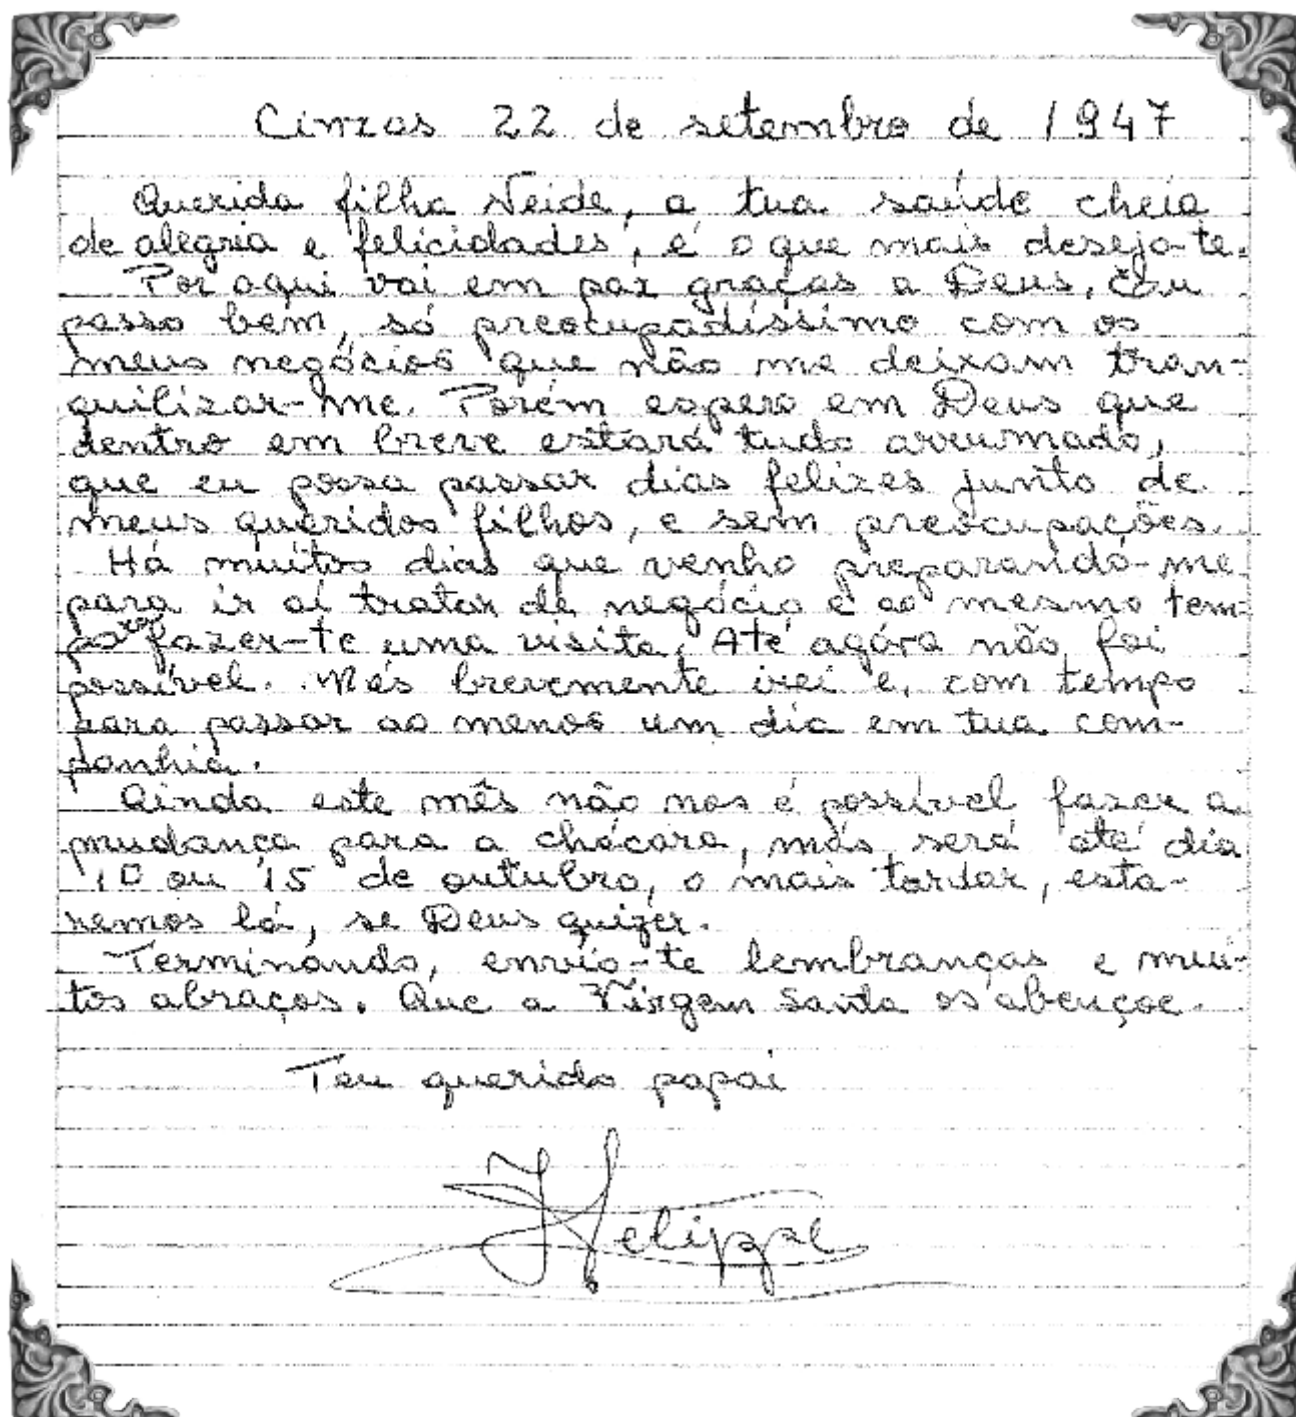 Cinzas 22 de setembro de 1947
Querida filha Neide, a tua saúde cheia
de alegria e felicidades, é o que mais desejo-te.
Por aqui vai em paz graças a Deus, Eu
passo bem, só preocupadíssimo com os
meus negócios que não me deixam tran-
quilizar-me. Porém espero em Deus que
dentro em breve estará tudo arrumado,
que eu possa passar dias felizes junto de
meus queridos filhos, e sem preocupações.
Há muitos dias que venho preparando-me
para ir aí tratar de negócio e ao mesmo tem-
po fazer-te uma visita. Até agóra não foi
possível. Mas brevemente irei e, com tempo
para passar ao menos um dia em tua com-
panhia.
Ainda este mês não nos é possível fazer a
mudança para a chácara, mas será até dia
10 ou 15 de outubro, o mais tardar, esta-
remos lá, se Deus quizer.
Terminando, envio-te lembranças e mui-
tos abraços. Que a Virgem Santa os abençoe.
Teu querido papai
Felippe